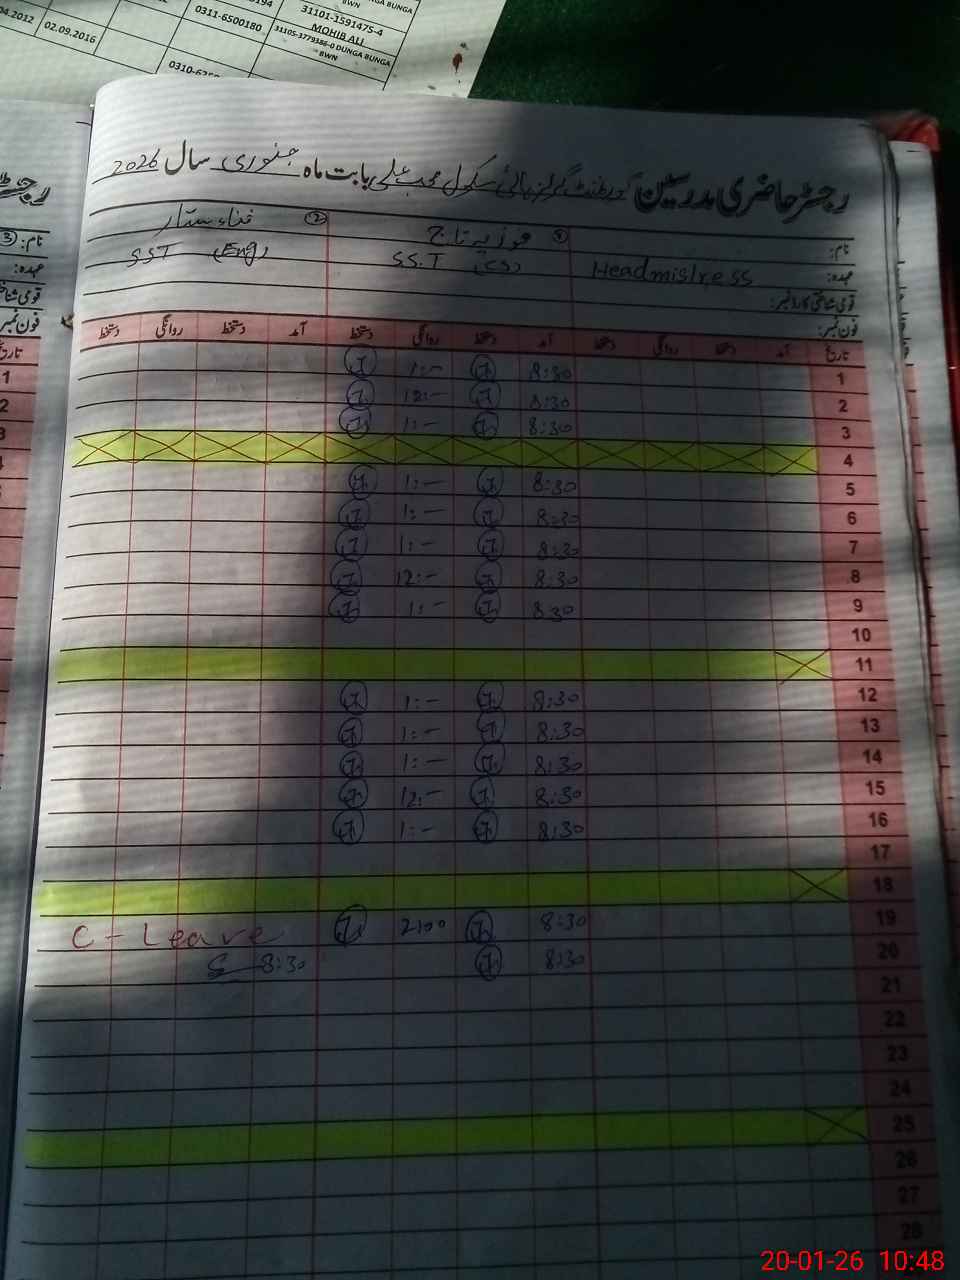 04.2012 02.09.2016 0311-6500180 31101-1591475-4
MOHIB ALI
31105-3779386-0 DUNGA BUNGA
BWN
رجسٹر حاضری مدرسین گورنمنٹ گرلز ہائی سکول محب علی بابت ماہ جنوری سال 2026
نام: ① فوزیہ تاج ②
عہدہ: Headmistress SS.T (CS) SST (Eng)
قومی شناختی کارڈ نمبر:
فون نمبر:
تاریخ آمد دستخط روانگی دستخط آمد دستخط روانگی دستخط آمد دستخط روانگی دستخط
1 8:30 1:-
2 8:30 12:-
3 8:30 1:-
4
5 8:30 1:-
6 8:30 1:-
7 8:30 1:-
8 8:30 12:-
9 8:30 1:-
10
11
12 8:30 1:-
13 8:30 1:-
14 8:30 1:-
15 8:30 12:-
16 8:30 1:-
17
18
19 8:30 2:00 C - Leave
20 8:30 8:30
21
22
23
24
25
26
27
28
20-01-26 10:48